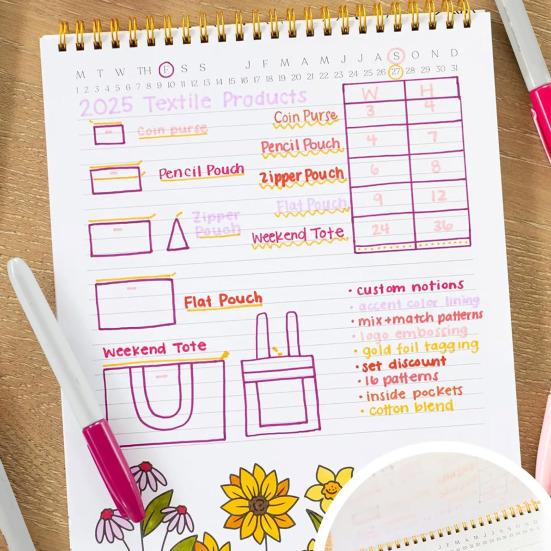 M T W TH F S S J F M A M J J A S O N D
1 2 3 4 5 6 7 8 9 10 11 12 13 14 15 16 17 18 19 20 21 22 23 24 25 26 27 28 29 30 31
2025 Textile Products
W H
Coin purse
Coin Purse 3 4
Pencil Pouch
Pencil Pouch 4 7
Zipper Pouch 6 8
Zipper Pouch
Flat Pouch 9 12
Weekend Tote 24 36
Flat Pouch
Weekend Tote
• custom notions
• accent color lining
• mix+match patterns
• logo embossing
• gold foil tagging
• set discount
• 16 patterns
• inside pockets
• cotton blend